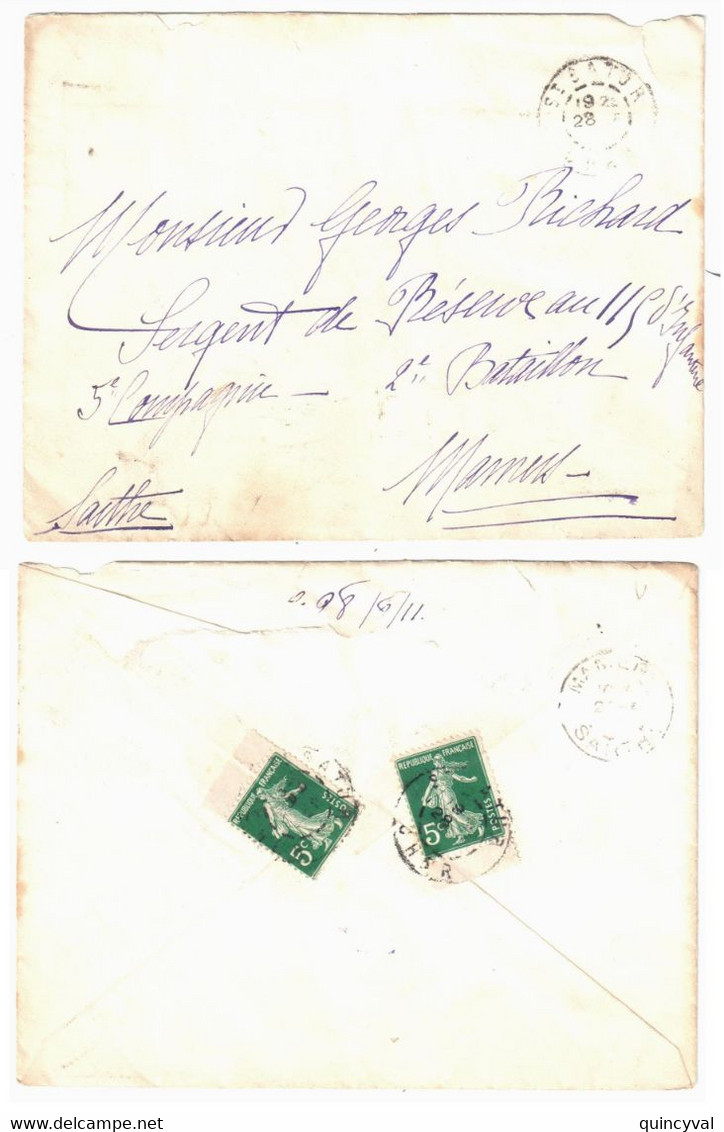 ST SATUR
19
28
Monsieur Georges Richard
Sergent de Réserve au 115 d'Infanterie
5e Compagnie – 2e Bataillon
Mamers –
Sarthe
MAMER
SARTHE
REPUBLIQUE FRANÇAISE
POSTES
5c
REPUBLIQUE FRANÇAISE
POSTES
5c
CHER
quincyval